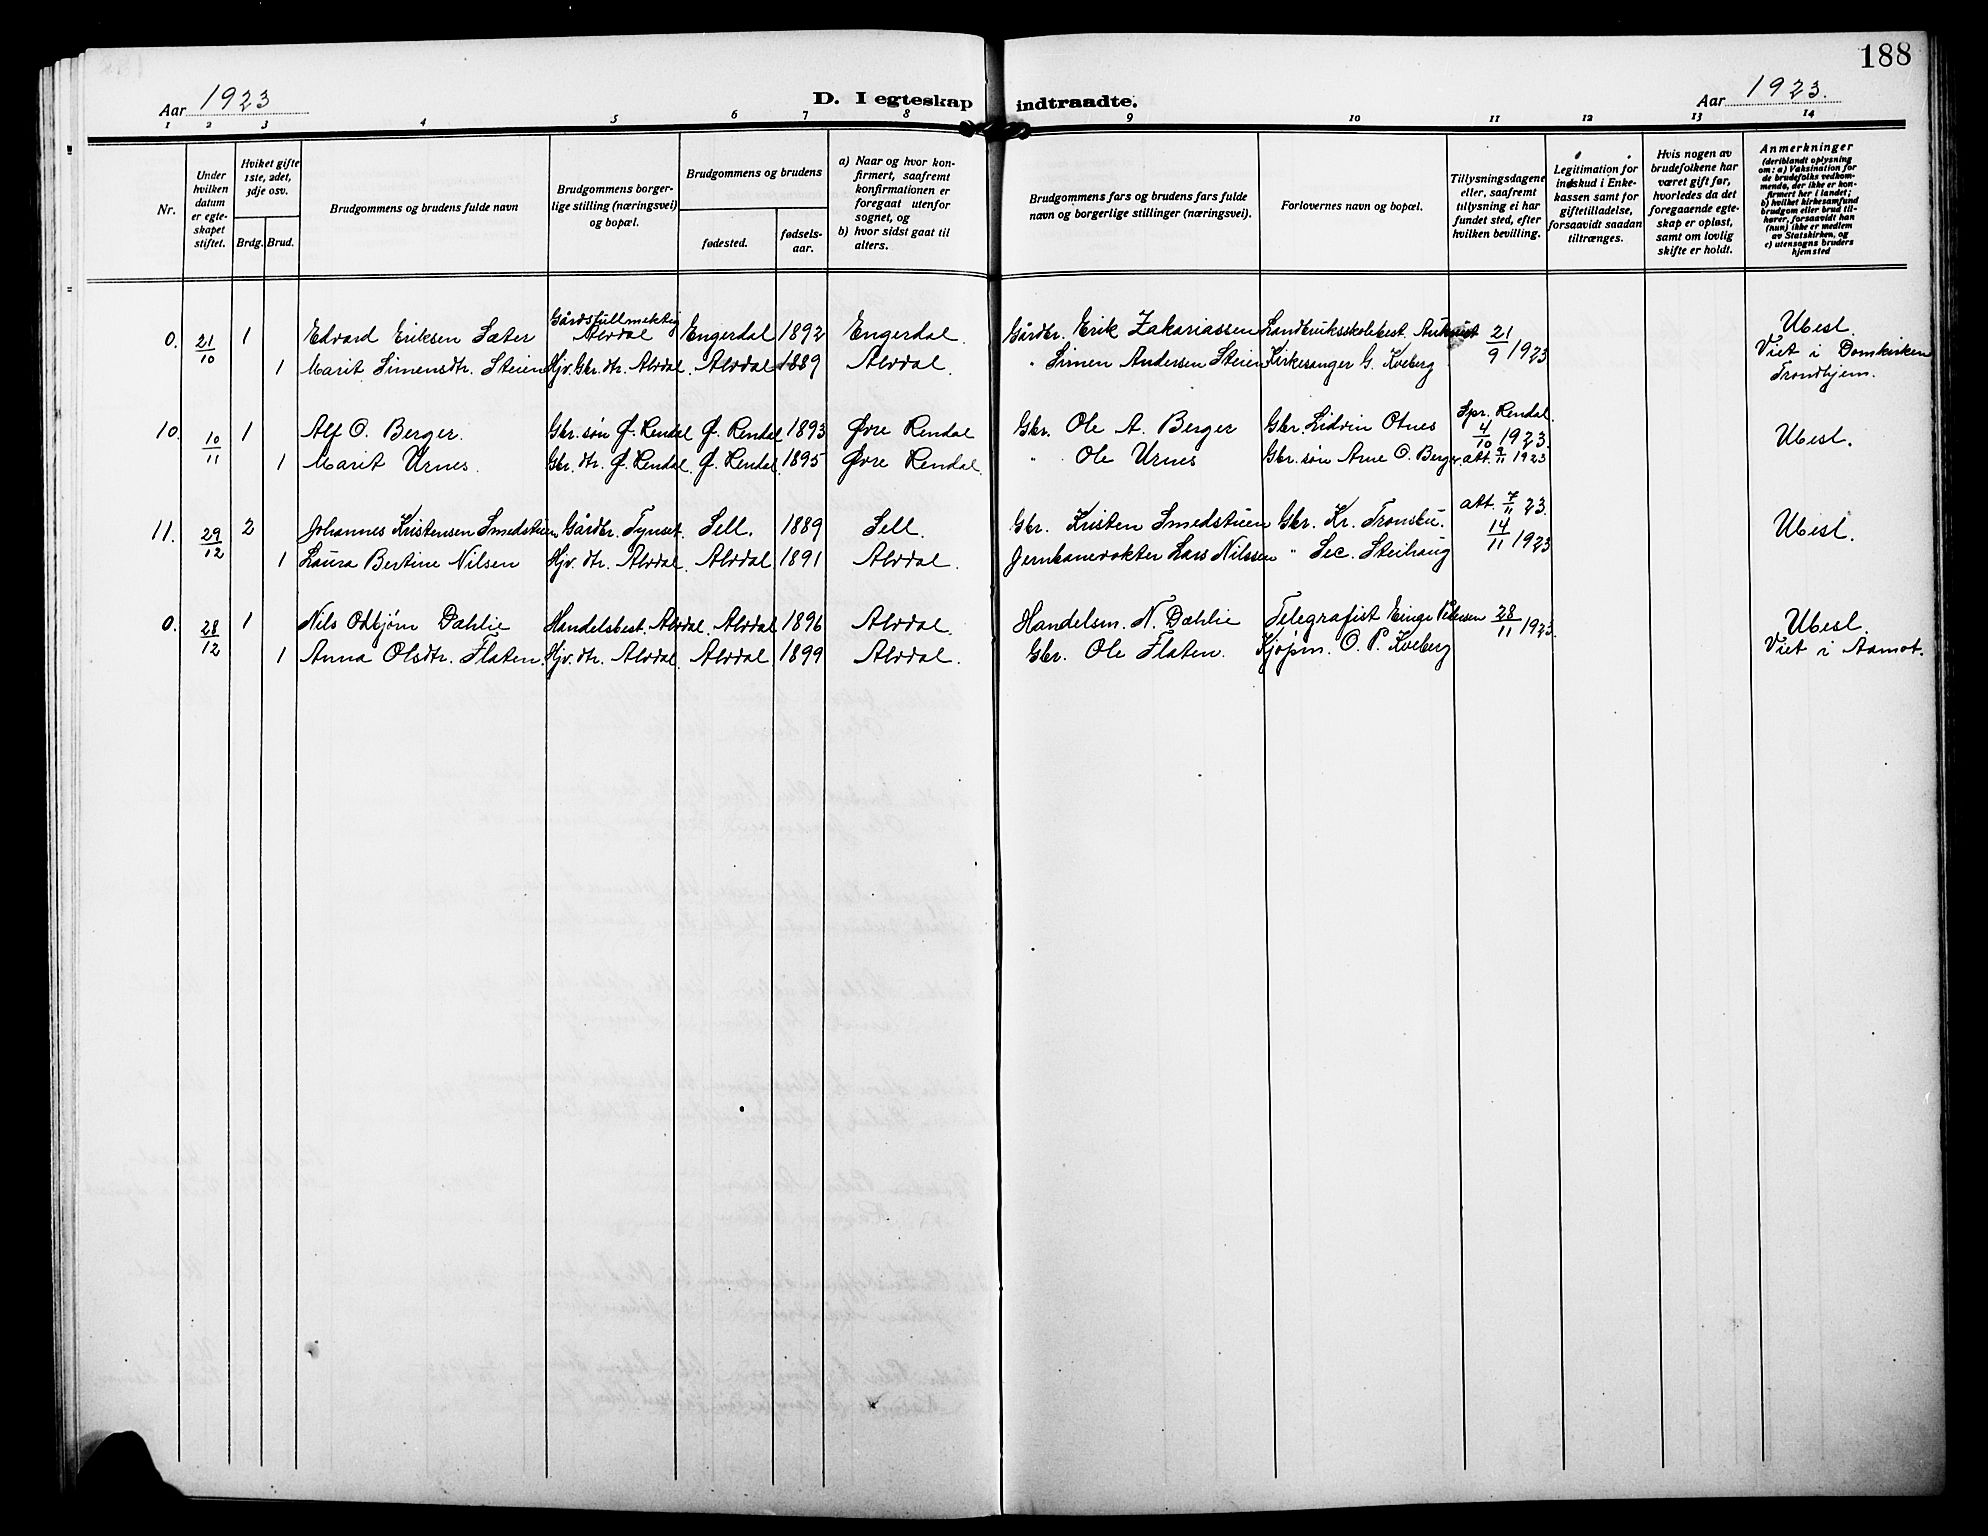 188
Aar 1923
D. I egteskap indtraadte.
Aar 1923.
1 2 3 4 5 6 7 8 9 10 11 12 13 14
Nr.
Under hvilken datum er egteskapet stiftet.
Hviket gifte 1ste, 2det, 3dje osv.
Brdg. Brud.
Brudgommens og brudens fulde navn
Brudgommens borgerlige stilling (næringsvei) og bopæl.
Brudgommens og brudens
fødested.
fødselsaar.
a) Naar og hvor konfirmert, saafremt konfirmationen er foregaat utenfor sognet, og
b) hvor sidst gaat til alters.
Brudgommens fars og brudens fars fulde navn og borgerlige stillinger (næringsvei).
Forlovernes navn og bopæl.
Tillysningsdagene eller, saafremt tillysning ei har fundet sted, efter hvilken bevilling.
Legitimation for indskud i Enkekassen samt for giftetilladelse, forsaavidt saadan tiltrænges.
Hvis nogen av brudefolkene har været gift før, hvorledes da det foregaaende egteskap er opløst, samt om lovlig skifte er holdt.
Anmerkninger (deriblandt oplysning om: a) Vaksination for de brudefolks vedkommende, der ikke er konfirmert her i landet; b) hvilket kirkesamfund brudgom eller brud tilhører, forsaavidt han (hun) ikke er medlem av Statskirken, og c) utensogns bruders hjemsted
0. 21/10 1 Edvard Eriksen Sæter Gårdsfullmektig Alvdal Engerdal 1892 Engerdal. Gårdbr. Erik Zakariassen Landbruksskolebest. 21/9 1923 Ubesl.
1 Marit Simensdtr. Steien Hjv. Gbr. dtr. Alvdal. Alvdal 1889 Alvdal. " Simen Andersen Steien Kirkesanger G. Kveberg Viet i Domkirken Trondhjem.
10. 10/11 1 Alf O. Berger. Gbr. søn Ø. Rendal Ø. Rendal 1893 Øvre Rendal Gbr. Ole A. Berger Gbr. Lidvin Otnes Spr. Rendal 4/10 1923. Ubesl.
1 Marit Urnes. Gbr. dtr. Ø. Rendal. Ø. Rendal. 1895 Øvre Rendal. " Ole Urnes Gbr. søn Arne O. Berger. att. 9/11 1923
11. 29/12 2 Johannes Kristensen Smedstuen Gårdbr. Tynset. Sell. 1889 Sell. Gbr. Kristen Smedstuen Gbr. Kr. Tronsbu. att. 7/11 23. 14/11 1923 Ubesl.
1 Laura Bertine Nilsen Hjv. dtr. Alvdal. Alvdal 1891 Alvdal. Jernbanevokter Lars Nilssen " Sec. Steihaug
0. 28/12 1 Nils Oddbjørn Dæhlie Handelsbest. Alvdal. Alvdal 1896 Alvdal. Handelsm. N. Dæhlie Telegrafist Einar Pedersen 28/11 1923. Ubesl.
1 Anna Olsdtr. Flaten. Hjv. dtr. Alvdal. Alvdal 1899 Alvdal. Gbr. Ole Flaten. Kjøpm. O. P. Kveberg Viet i Aamot.